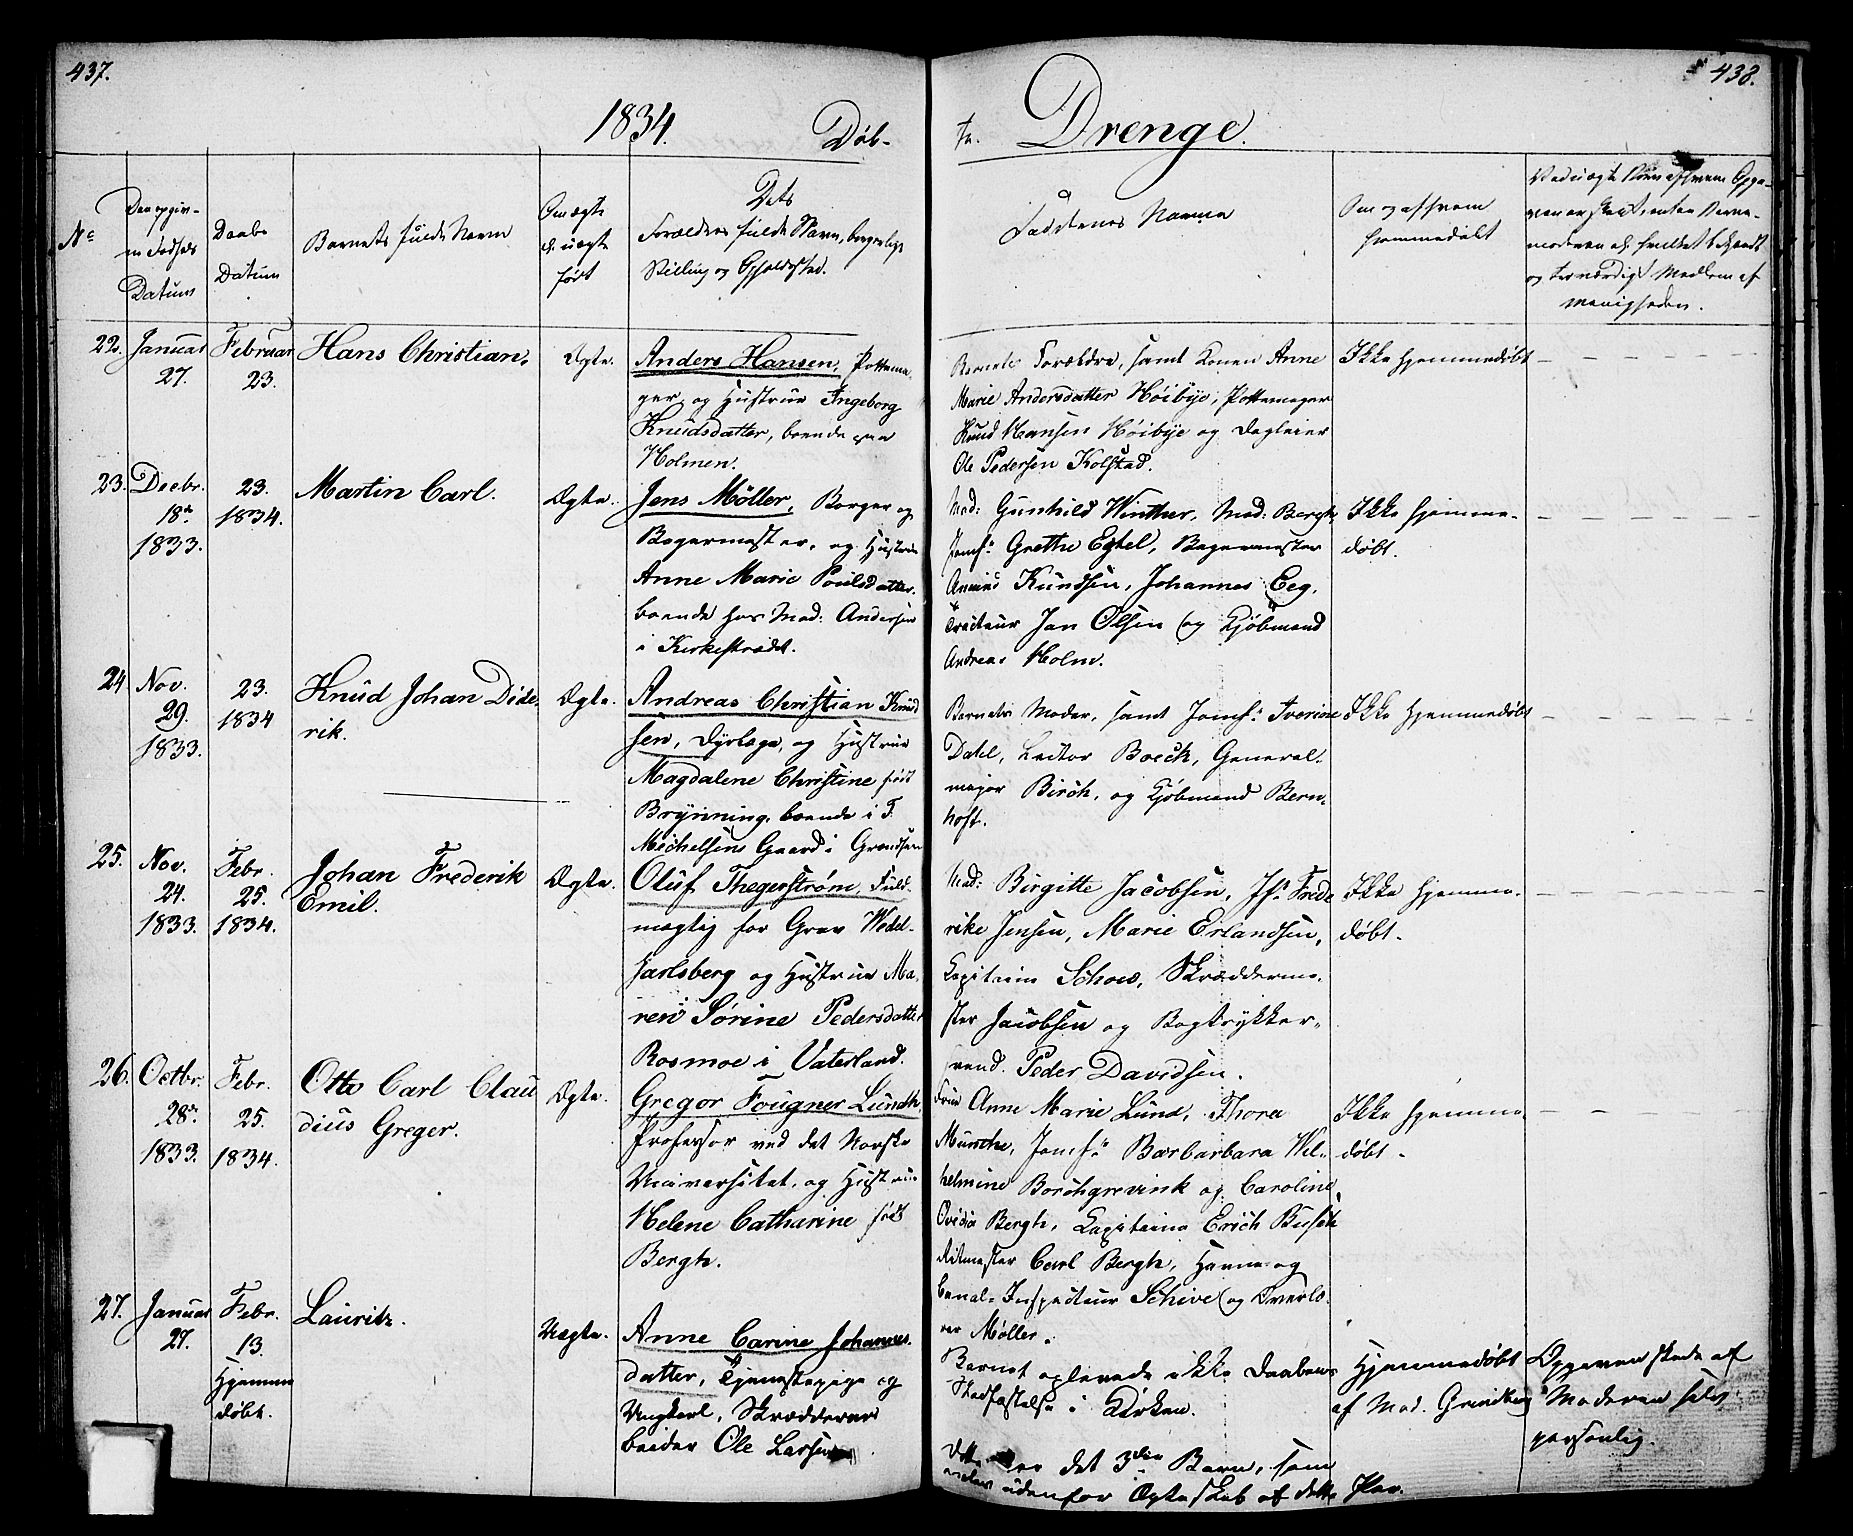 437.
438.
1834.
Døb-
te. Drenge.
No
Den opgiv-
ne Fødsels
Datum
Daabs
Datum
Barnets fulde Navn
Om ægte
el. uægte
født
Dets
Forældres fulde Navn, borgerlige
Stilling og Opholdssted.
Faddernes Navne
Om og af hvem
hjemmedøbt
Ved uægte Børn af hvem Opga-
ven er skeet, enten Barne-
moderen el. hvilket bekjendt
og troværdigt Medlem af
Menigheden.
22. Januar
27.
Februar
23.
Hans Christian.
Ægte.
Anders Hansen, Pottema-
ger og Hustrue Ingeborg
Knudsdatter, boende paa
Holmen.
Barnets Forældre, samt Konen Anne
Marie Andersdatter Høibye, Pottemager
Knud Hansen Høibye og Dagleier
Ole Pedersen Kolstad.
Ikke hjemmedøbt
23. Decbr.
18de
1833.
23.
1834.
Martin Carl.
Ægte.
Jens Møller, Borger og
Bagermester, og Hustrue
Anne Marie Poulsdatter,
boende hos Mad: Andersen
i Kirkestrædet.
Mad: Gunhild Winther, Mad: Bergh,
Jomf: Grethe Egtel, Bagermester
Knudsen, Johannes Eeg,
Tracteur Jan Olsen og Kjøbmand
Andreas Holm.
Ikke hjemme-
døbt.
24 Nov.
29.
1833.
23.
1834
Knud Johan Dide-
rik.
Ægte.
Andreas Christian Knud
sen, Dyrlæge, og Hustrue
Magdalene Christine født
Brynning, boende i F.
Michelsens Gaard i Grændsen
Barnets Moder, samt Jomf: Iverine
Dahl, Lector Boeck, General-
major Birch, og Kjøbmand Bern-
hoft.
Ikke hjemmedøbt
25. Nov.
24.
1833.
Febr.
25.
1834.
Johan Frederik
Emil.
Ægte.
Oluf Thegerstrøm, Fuld-
mægtig for Grev Wedel-
Jarlsberg og Hustrue Ma-
ren Sørine Pedersdatter
Rosmoe i Vaterland.
Mad: Birgitte Jacobsen, Jf: Frede
rike Jensen, Marie Erlandsen,
Capitain Schoes, Skrædderme-
ster Jacobsen og Bogtrykker-
svend Peder Davidsen.
Ikke hjemme-
døbt.
26. Octbr.
28de
1833.
Febr.
25.
1834.
Otto Carl Clau
dius Greger.
Ægte.
Gregor Fougner Lundh,
Professor ved det Norske
Universitet, og Hustrue
Helene Catharine født
Bergh.
Frue Anne Marie Lund, Thora
Munche, Jomf: Barbarbara Wil-
helmine Borchgrevink og Caroline
Ovidia Bergh, Capitaine Erich Busch
Ritmester Carl Bergh, Havne- og
Canal-Inspecteur Schive og Overlæ-
rer Møller.
Ikke hjemme
døbt.
27. Januar
27.
Febr.
13.
Hjemme
døbt.
Lauritz.
Uægte.
Anne Carine Johannes-
datter, Tjenestepige og
Ungkarl, Skrædderar-
beider Ole Larsen.
Barnet oplevede ikke Daabens
Stadfæstelse i Kirken.
Dette er det 3die Barn, som
uden for Ægteskab af dette Par.
Hjemmedøbt
af Mad. Grundberg
Opgaven skede af
Moderen selv
personlig.